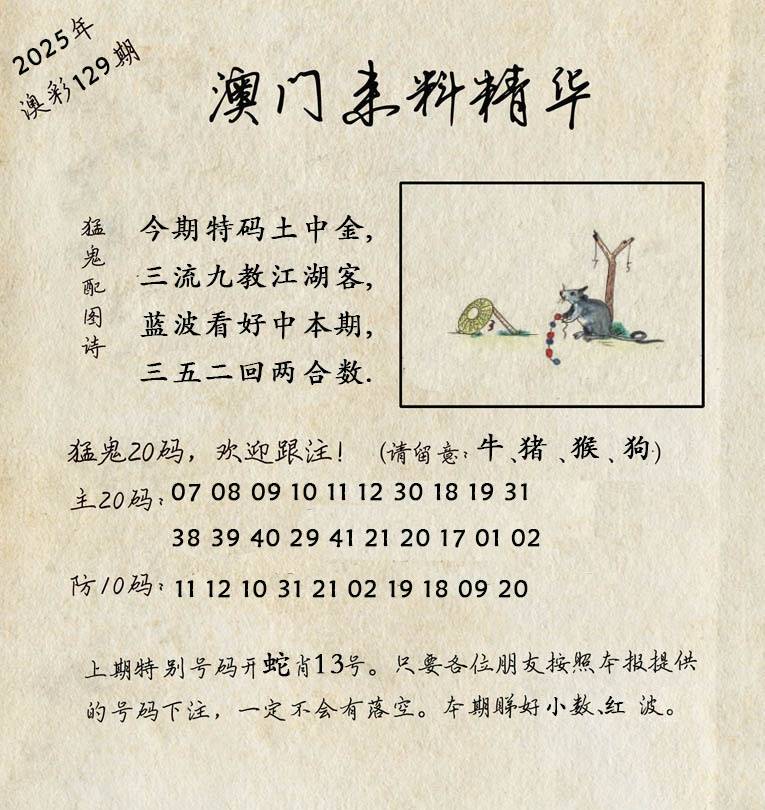 2025年
澳彩129期
澳门来料精华
猛鬼配图诗
今期特码土中金,
三流九教江湖客,
蓝波看好中本期,
三五二回两合数.
3
猛鬼20码，欢迎跟注！ (请留意：牛、猪、猴、狗)
主20码：07 08 09 10 11 12 30 18 19 31
38 39 40 29 41 21 20 17 01 02
防10码：11 12 10 31 21 02 19 18 09 20
上期特别号码开蛇肖13号。只要各位朋友按照本报提供
的号码下注，一定不会有落空。本期睇好小数、红 波。